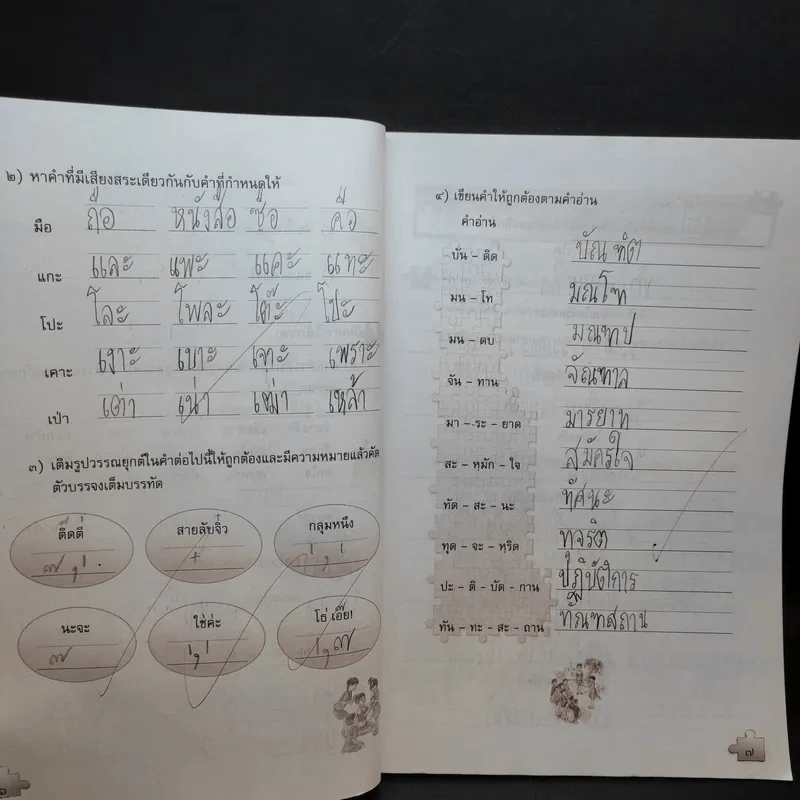 ๒) หาคำที่มีเสียงสระเดียวกันกับคำที่กำหนดให้
มือ ถือ หนังสือ ซื้อ คือ
แกะ และ แพะ แคะ แทะ
โปะ โละ โพละ โต๊ะ โปะ
เคาะ เงาะ เบาะ เจาะ เพราะ
เป่า เต่า เน่า เฒ่า เหล้า
๓) เติมรูปวรรณยุกต์ในคำต่อไปนี้ให้ถูกต้องและมีความหมายแล้วคัด
ตัวบรรจงเต็มบรรทัด
ติ๊ดตี่ สายลับจิ๋ว กลุ่มหนึ่ง
นะจะ ใช่ค่ะ โธ่ เอ๊ย!
๔) เขียนคำให้ถูกต้องตามคำอ่าน
คำอ่าน
บัน – ดิด บัณฑิต
มน – โท มณโฑ
มน – ดบ มณฑป
จัน – ทาน จัณฑาล
มา – ระ – ยาด มารยาท
สะ – หฺมัก – ใจ สมัครใจ
ทัด – สะ – นะ ทัศนะ
ทุด – จะ – หฺริด ทุจริต
ปะ – ติ – บัด – กาน ปฏิบัติการ
ทัน – ทะ – สะ – ถาน ทัณฑสถาน
๗